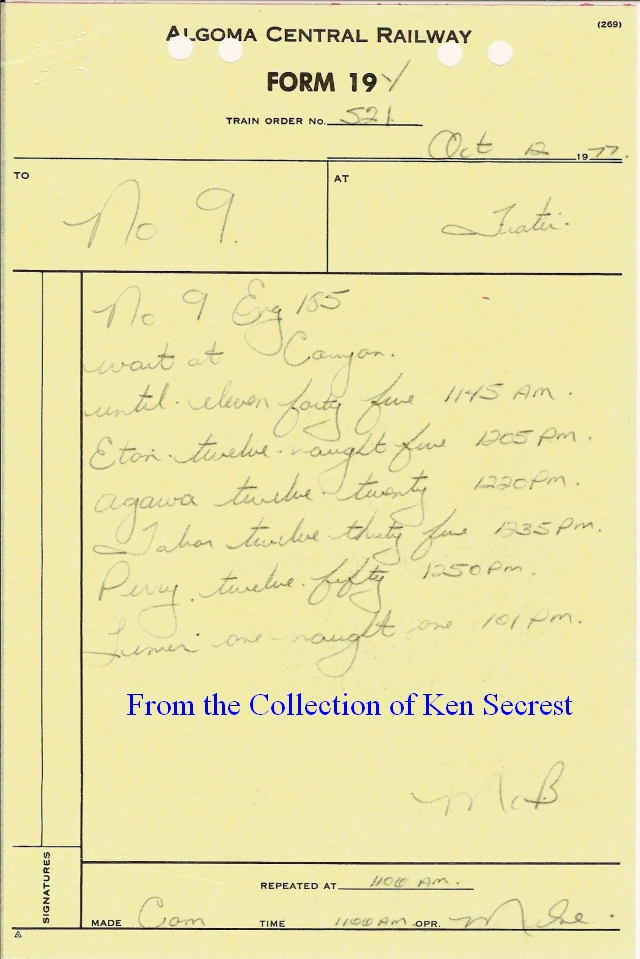 (269)
ALGOMA CENTRAL RAILWAY
FORM 19 Y
TRAIN ORDER No. 521.
Oct 12 1977.
TO
No 9.
AT
Frater.
No 9 Eng 185
wait at Canyon.
until eleven forty five 1145 AM.
Eton twelve naught five 1205 Pm.
Agawa twelve twenty 1220 Pm.
Tabor twelve thirty five 1235 Pm.
Perry twelve fifty 1250 Pm.
one naught one 101 Pm.
From the Collection of Ken Secrest
McB
SIGNATURES
REPEATED AT 1100 AM.
MADE Com TIME 1100 AM OPR.